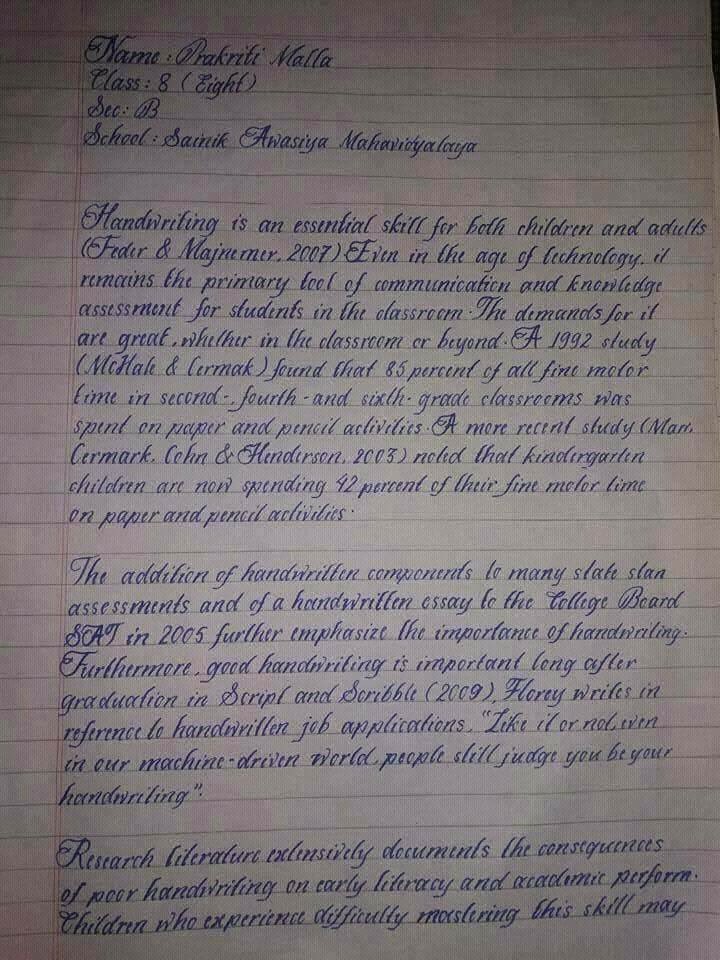 Name : Prakriti Malla
Class : 8 ( Eight)
Sec : B
School : Sainik Awasiya Mahavidyalaya
Handwriting is an essential skill for both children and adults
(Feder & Majnemer, 2007) Even in the age of technology, it
remains the primary tool of communication and knowledge
assessment for students in the classroom. The demands for it
are great, whether in the classroom or beyond. A 1992 study
(McHale & Cermak) found that 85 percent of all fine motor
time in second-, fourth - and sixth- grade classrooms was
spent on paper and pencil activities. A more recent study (Marr,
Cermark, Cohn & Henderson, 2003) noted that kindergarten
children are now spending 42 percent of their fine motor time
on paper and pencil activities.
The addition of handwritten components to many state stan
assessments and of a handwritten essay to the College Board
SAT in 2005 further emphasize the importance of handwriting.
Furthermore, good handwriting is important long after
graduation in Script and Scribble (2009), Florey writes in
reference to handwritten job applications, "Like it or not, even
in our machine-driven world, people still judge you be your
handwriting".
Research literature extensively documents the consequences
of poor handwriting on early literacy and academic perform.
Children who experience difficulty mastering this skill may